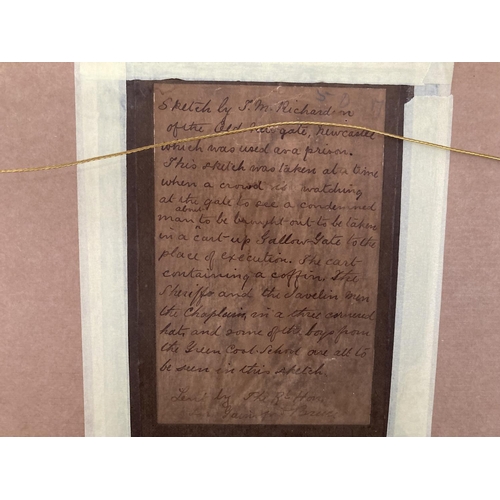 Sketch by T. M. Richardson
of the Old New gate, Newcastle
which was used as a prison.
This sketch was taken at a time
when a crowd is watching
at the gate to see a condemned
man about to be brought out to be taken
in a cart up Gallow Gate to the
place of execution. The cart
containing a coffin. The
Sheriffs and the Javelin men
the Chaplain, in a three cornered
hat, and some of the boys from
the Green Coat School are all to
be seen in this sketch.
Lent by The Rt Hon